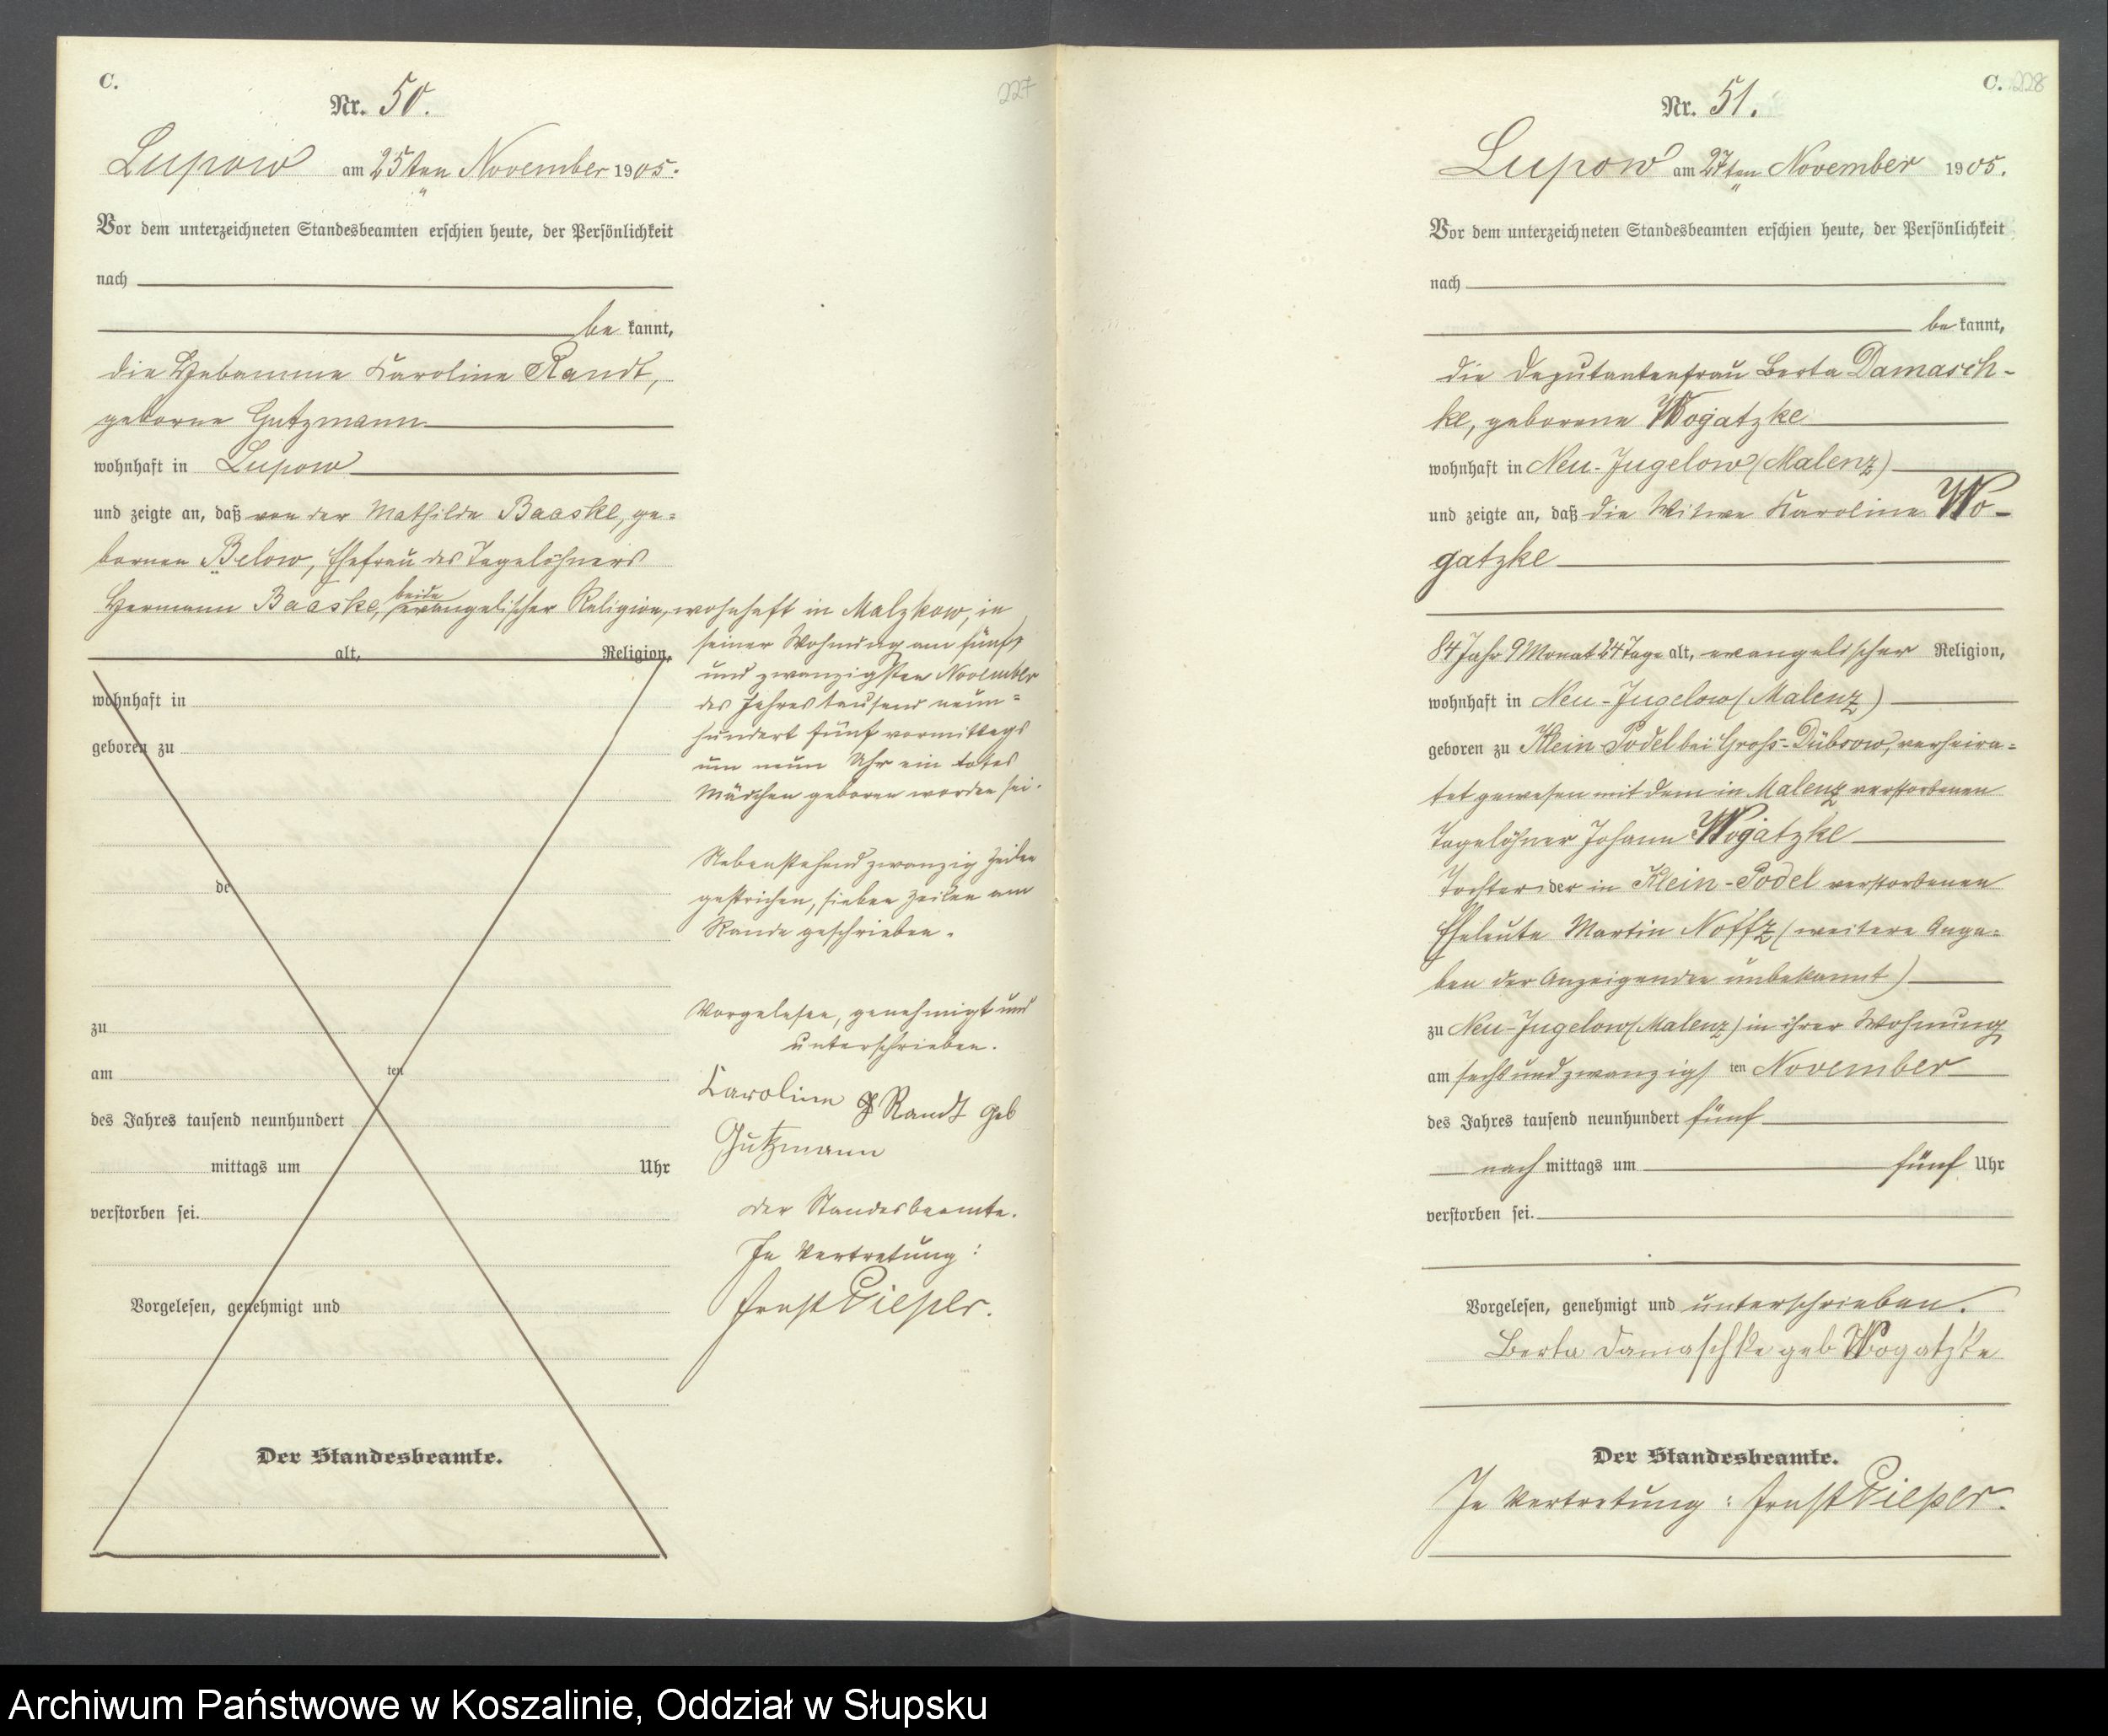 C.
227
Nr. 50.
Lupow am 25ten November 1905.
Vor dem unterzeichneten Standesbeamten erschien heute, der Persönlichkeit
nach
be kannt,
die Hebamme Karoline Randt,
geborne Gutzmann
wohnhaft in Lupow
und zeigte an, daß von der Mathilde Baaske, ge=
bornen Below, Ehefrau des Tagelöhners
Hermann Baaske, beide evangelischer Religion, wohnhaft in Malzkow, in
seiner Wohnung am fünf
und zwanzigsten November
des Jahres tausend neun=
hundert fünf vormittags
um neun Uhr ein totes
Mädchen geboren worden sei.
Nebenstehend zwanzig Zeilen
gestrichen, sieben Zeilen am
Rande geschrieben.
Vorgelesen, genehmigt und
unterschrieben.
Karoline Randt geb
Gutzmann
Der Standesbeamte.
In Vertretung:
Ernst Pieper.
alt, Religion,
wohnhaft in
geboren zu
de
zu
am ten
des Jahres tausend neunhundert
mittags um Uhr
verstorben sei.
Vorgelesen, genehmigt und
Der Standesbeamte.
C. 228
Nr. 51.
Lupow am 27ten November 1905.
Vor dem unterzeichneten Standesbeamten erschien heute, der Persönlichkeit
nach
be kannt,
die Deputantenfrau Berta Damasch-
ke, geborene Wogatzke
wohnhaft in Neu-Jugelow (Malenz)
und zeigte an, daß die Witwe Karoline Wo-
gatzke
84 Jahr 9 Monat 24 Tage alt, evangelischer Religion,
wohnhaft in Neu-Jugelow (Malenz)
geboren zu Klein Podel bei Groß-Dübsow, verheira=
tet gewesen mit dem in Malenz verstorbenen
Tagelöhner Johann Wogatzke
Tochter der in Klein-Podel verstorbenen
Eheleute Martin Noffz (weitere Anga=
ben der Anzeigenden unbekannt)
zu Neu-Jugelow (Malenz) in ihrer Wohnung
am sechsundzwanzigs ten November
des Jahres tausend neunhundert fünf
nach mittags um fünf Uhr
verstorben sei.
Vorgelesen, genehmigt und unterschrieben.
Berta Damaschke geb Wogatzke
Der Standesbeamte.
In Vertretung: Ernst Pieper.
Archiwum Państwowe w Koszalinie, Oddział w Słupsku